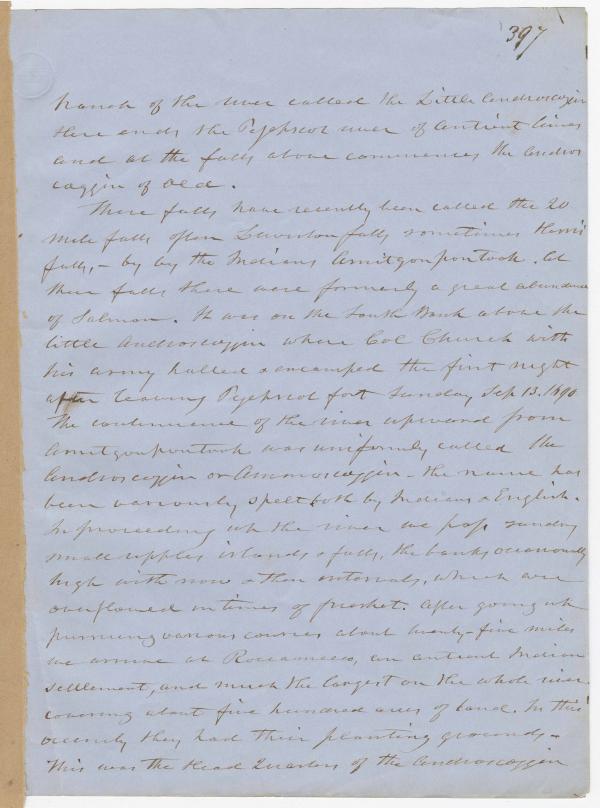 397
branch of the river called the Little Androscoggin
Here ends the Pejepscot river of antient times
and at the falls above commences the Andros
coggin of old.
These falls have recently been called the 20
mile falls often Lewiston falls sometimes Harris
falls, - by by the Indians Amitgonpontook. At
these falls there were formerly a great abundance
of Salmon. It was on the South Bank above the
little Androscoggin where Col Church with
his army halted & encamped the first night
after leaving Pejepscot fort Sunday Sep 13. 1690
The continuence of the river upward from
Amitgonpontook was uniformly called the
Androscoggin or Ammoscoggin - the name has
been variously spelt both by Indians & English.
In proceeding up the river we pass sunday
small ripples islands & falls, the banks occasionally
high with now & then intervals, which are
overflowed in times of freshet. After going up
pursuing various courses about twenty-five miles
we arrive at Rocamecco, an antient Indian
settlement, and much the largest on the whole river
covering about five hundred acres of land. In this
vicinity they had their planting grounds -
This was the Head Quarters of the Androscoggin